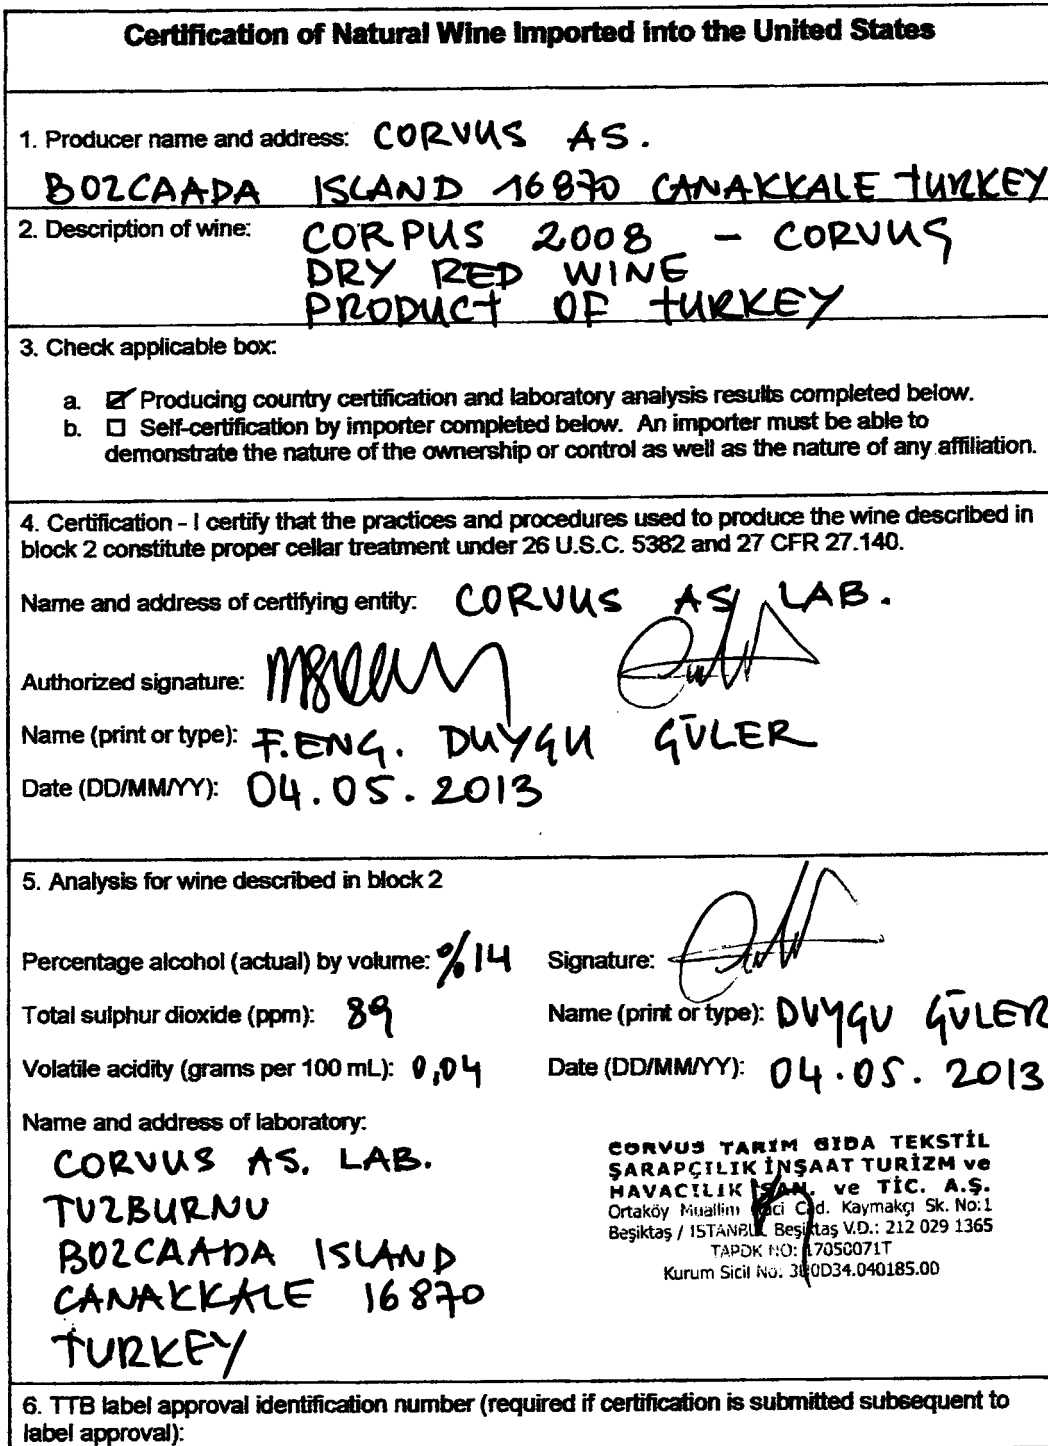 Certification of Natural Wine Imported into the United States
1. Producer name and address: CORVUS AS.
BOZCAADA ISLAND 16870 CANAKKALE TURKEY
2. Description of wine: CORPUS 2008 - CORVUS
DRY RED WINE
PRODUCT OF TURKEY
3. Check applicable box:
a. ☑ Producing country certification and laboratory analysis results completed below.
b. ☐ Self-certification by importer completed below. An importer must be able to
demonstrate the nature of the ownership or control as well as the nature of any affiliation.
4. Certification - I certify that the practices and procedures used to produce the wine described in
block 2 constitute proper cellar treatment under 26 U.S.C. 5382 and 27 CFR 27.140.
Name and address of certifying entity: CORVUS AS LAB.
Authorized signature:
Name (print or type): F.ENG. DUYGU GÜLER
Date (DD/MM/YY): 04.05.2013
5. Analysis for wine described in block 2
Percentage alcohol (actual) by volume: %14
Signature:
Total sulphur dioxide (ppm): 89
Name (print or type): DUYGU GÜLER
Volatile acidity (grams per 100 mL): 0,04
Date (DD/MM/YY): 04.05.2013
Name and address of laboratory:
CORVUS AS. LAB.
TUZBURNU
BOZCAADA ISLAND
CANAKKALE 16870
TURKEY
CORVUS TARIM GIDA TEKSTİL
ŞARAPÇILIK İNŞAAT TURİZM ve
HAVACILIK SAN. ve TİC. A.Ş.
Ortaköy Muallim Naci Cad. Kaymakçı Sk. No:1
Beşiktaş / İSTANBUL Beşiktaş V.D.: 212 029 1365
TAPDK NO: 17050071T
Kurum Sicil No: 0D34.040185.00
6. TTB label approval identification number (required if certification is submitted subsequent to
label approval):